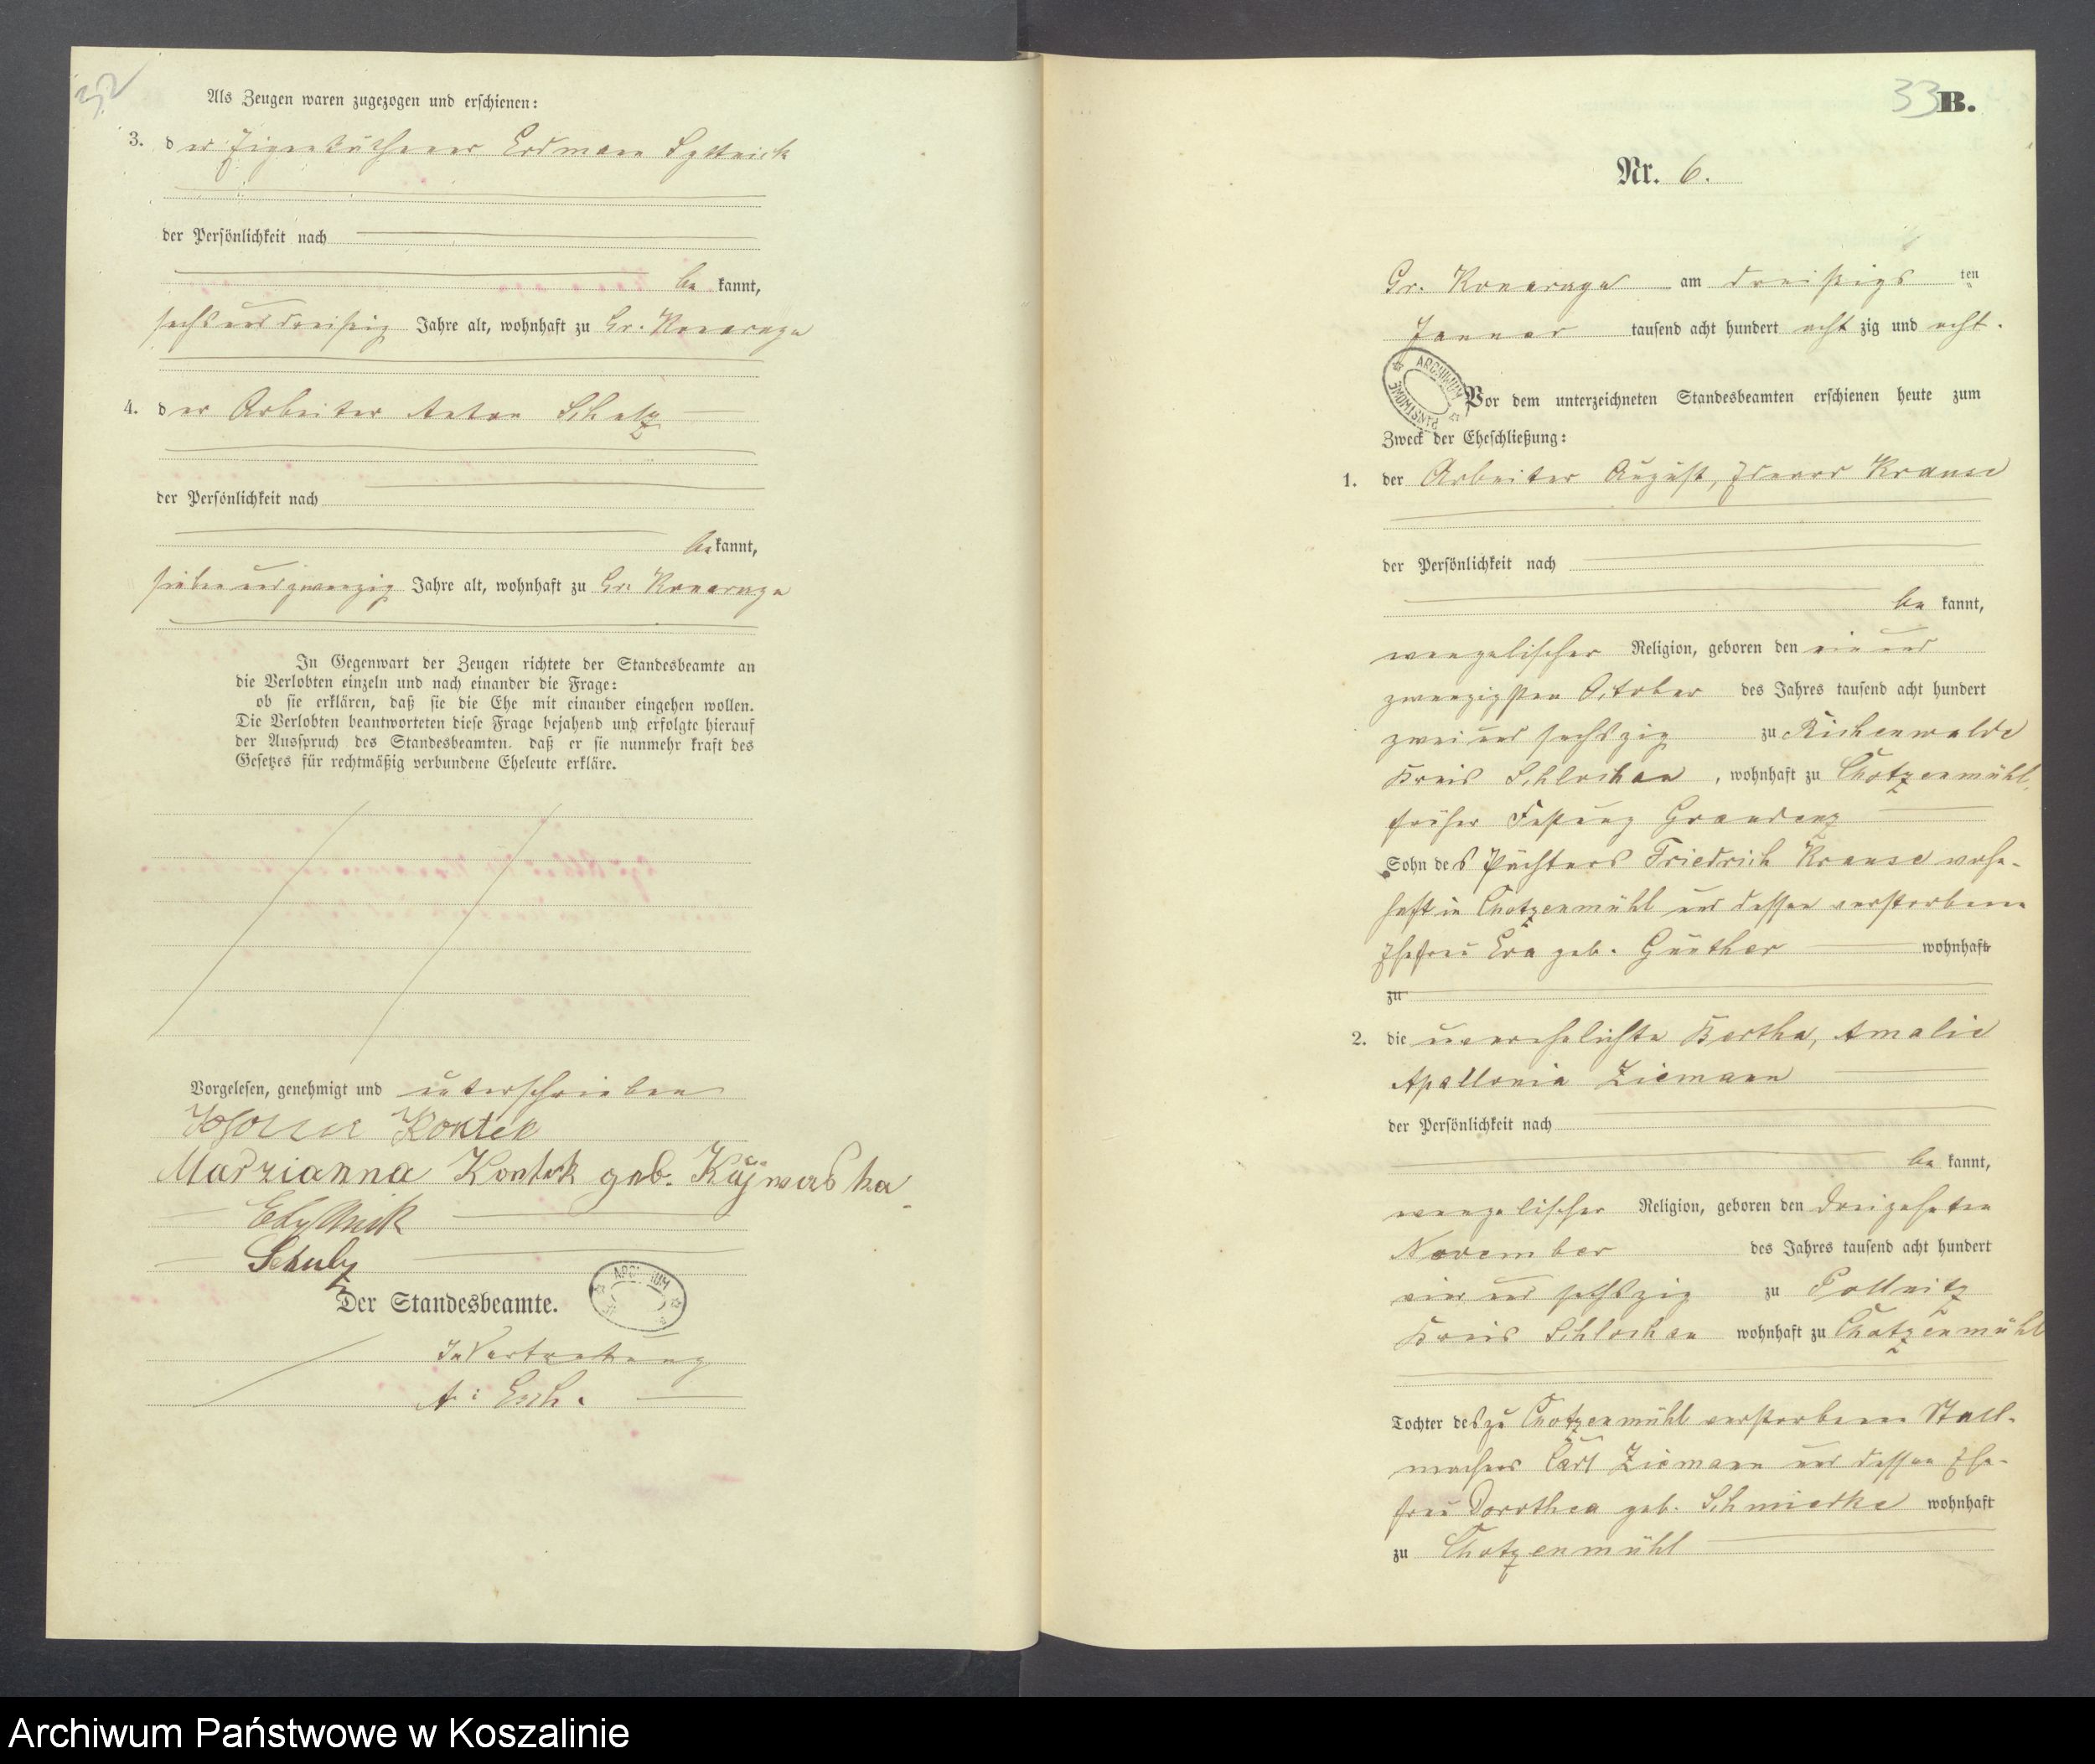 32
Als Zeugen waren zugezogen und erschienen:
3. der Eigenkäthner Erdmann
der Persönlichkeit nach
bekannt,
sechsunddreißig Jahre alt, wohnhaft zu Gr. Konarczyn
4. der Arbeiter Anton Schulz
der Persönlichkeit nach
bekannt,
siebenundzwanzig Jahre alt, wohnhaft zu Gr. Konarczyn
In Gegenwart der Zeugen richtete der Standesbeamte an
die Verlobten einzeln und nach einander die Frage:
ob sie erklären, daß sie die Ehe mit einander eingehen wollen.
Die Verlobten beantworteten diese Frage bejahend und erfolgte hierauf
der Ausspruch des Standesbeamten, daß er sie nunmehr kraft des
Gesetzes für rechtmäßig verbundene Eheleute erkläre.
Vorgelesen, genehmigt und unterschrieben
Kontek
Marzianna Kontek geb.
Schulz
Der Standesbeamte.
In Vertretung
33 B.
Nr. 6.
Gr. Konarczyn am dreißigsten
Januar tausend acht hundert achtzig und acht.
ARCHIWUM PAŃSTWOWE
Vor dem unterzeichneten Standesbeamten erschienen heute zum
Zweck der Eheschließung:
1. der Arbeiter August, Eduard Krause
der Persönlichkeit nach
bekannt,
evangelischer Religion, geboren den ein und
zwanzigsten October des Jahres tausend acht hundert
zwei und sechszig zu Eickenwalde
Kreis Schlochau, wohnhaft zu Chotzenmühl,
früher Festung Graudenz
Sohn des Pächters Friedrich Krause wohn-
haft in Chotzenmühl und dessen verstorbenen
Ehefrau Eva geb. Günther wohnhaft
zu
2. die unverehelichte Bertha, Amalie
Apollonia Ziemann
der Persönlichkeit nach
bekannt,
evangelischer Religion, geboren den dreizehnten
November des Jahres tausend acht hundert
vier und sechszig zu Pollnitz
Kreis Schlochau wohnhaft zu Chotzenmühl
Tochter des zu Chotzenmühl verstorbenen Stell-
machers Carl Ziemann und dessen Ehe-
frau Dorothea geb. Schmidtke wohnhaft
zu Chotzenmühl
Archiwum Państwowe w Koszalinie